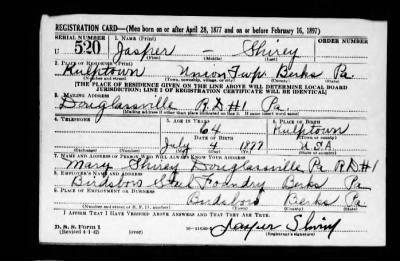 REGISTRATION CARD—(Men born on or after April 28, 1877 and on or before February 16, 1897)
SERIAL NUMBER 1. NAME (Print)
U 520 Jasper — Shirey
(First) (Middle) (Last)
2. PLACE OF RESIDENCE (Print)
Kulptown Union Twp. Berks Pa.
(Number and street) (Town, township, village, or city) (County) (State)
[THE PLACE OF RESIDENCE GIVEN ON THE LINE ABOVE WILL DETERMINE LOCAL BOARD
JURISDICTION; LINE 2 OF REGISTRATION CERTIFICATE WILL BE IDENTICAL]
3. MAILING ADDRESS
Douglassville R.D#1 Pa.
[Mailing address if other than place indicated on line 2. If same insert word same]
4. TELEPHONE 5. AGE IN YEARS 6. PLACE OF BIRTH
64 Kulptown
DATE OF BIRTH (Town or county)
July 4 1877 U.S.A.
(Exchange) (Number) (Mo.) (Day) (Yr.) (State or country)
7. NAME AND ADDRESS OF PERSON WHO WILL ALWAYS KNOW YOUR ADDRESS
Mary Shirey Douglassville Pa. R.D#1
8. EMPLOYER'S NAME AND ADDRESS
Birdsboro Steel Foundry Berks Pa.
9. PLACE OF EMPLOYMENT OR BUSINESS
Birdsboro Berks Pa.
(Number and street or R. F. D. number) (Town) (County) (State)
I AFFIRM THAT I HAVE VERIFIED ABOVE ANSWERS AND THAT THEY ARE TRUE.
D. S. S. Form 1
(Revised 4-1-42) (over) Jasper Shirey
(Registrant's signature)